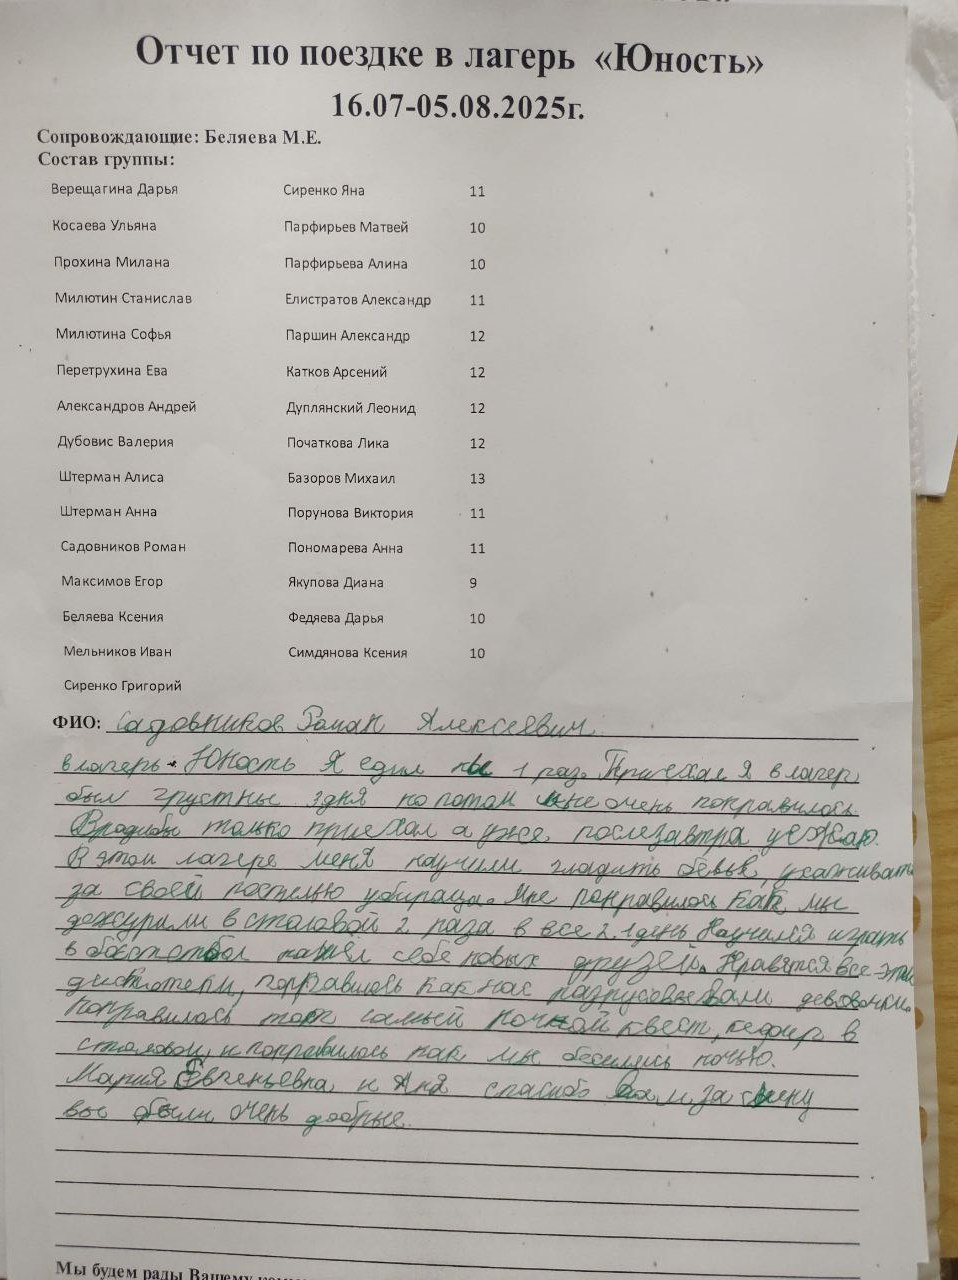 Отчет по поездке в лагерь «Юность»
16.07-05.08.2025г.
Сопровождающие: Беляева М.Е.
Состав группы:
Верещагина Дарья Сиренко Яна 11
Косаева Ульяна Парфирьев Матвей 10
Прохина Милана Парфирьева Алина 10
Милютин Станислав Елистратов Александр 11
Милютина Софья Паршин Александр 12
Перетрухина Ева Катков Арсений 12
Александров Андрей Дуплянский Леонид 12
Дубовис Валерия Початкова Лика 12
Штерман Алиса Базоров Михаил 13
Штерман Анна Порунова Виктория 11
Садовников Роман Пономарева Анна 11
Максимов Егор Якупова Диана 9
Беляева Ксения Федяева Дарья 10
Мельников Иван Симдянова Ксения 10
Сиренко Григорий
ФИО: Садовников Роман Алексеевич
в лагерь Юность Я едил 1 раз. Приехал я в лагер
был грустны 3 дня но потом мне очень понравилось.
Вродибы только приехал а уже послезавтра уезжаю.
В этом лагере меня научили гладить бельё, ухаживать
за своей постелью убираца. Мне понравилось как мы
дежурили в столовой 2 раза в все 21 день Научился играть
в нашёл себе новых друзей. Нравятся все эти
дискотеки, порравилось как нас разрисовывали девчонки.
понравилось тот самый ночной квест, кефир в
столовой, и поправилось как мы бесились ночью.
Мария Евгеньевна и Аня спасибо вам за смену
вы были очень добрые.
Мы будем рады Вашему